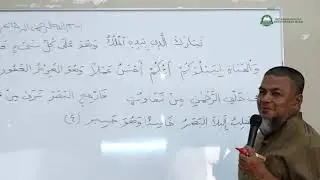 تَبَارَكَ الَّذِي بِيَدِهِ الْمُلْكُ وَهُوَ عَلَى كُلِّ شَيْءٍ
وَالْحَيَاةَ لِيَبْلُوَكُمْ أَيُّكُمْ أَحْسَنُ عَمَلًا وَهُوَ الْعَزِيزُ الْغَفُورُ
خَلْقِ الرَّحْمٰنِ مِنْ تَفَاوُتٍ فَارْجِعِ الْبَصَرَ تَرَى مِنْ
إِلَيْكَ الْبَصَرُ خَاسِئًا وَهُوَ حَسِيرٌ (٤)